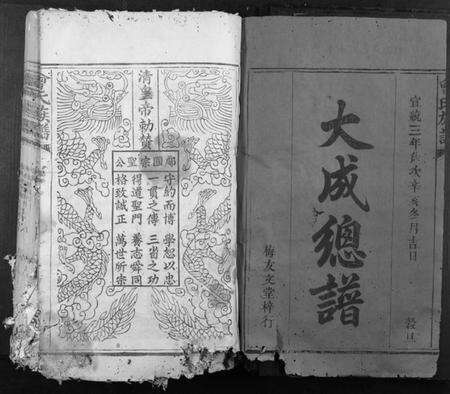 宣統三年歲次辛亥冬月吉日
大成總譜
梅友文堂梓行
清皇帝勅贊
郕國宗聖公
守約而博 學恕以忠
一貫之傳 三省之功
得道聖門 養志舜同
格致誠正 萬世所宗
曾氏族譜